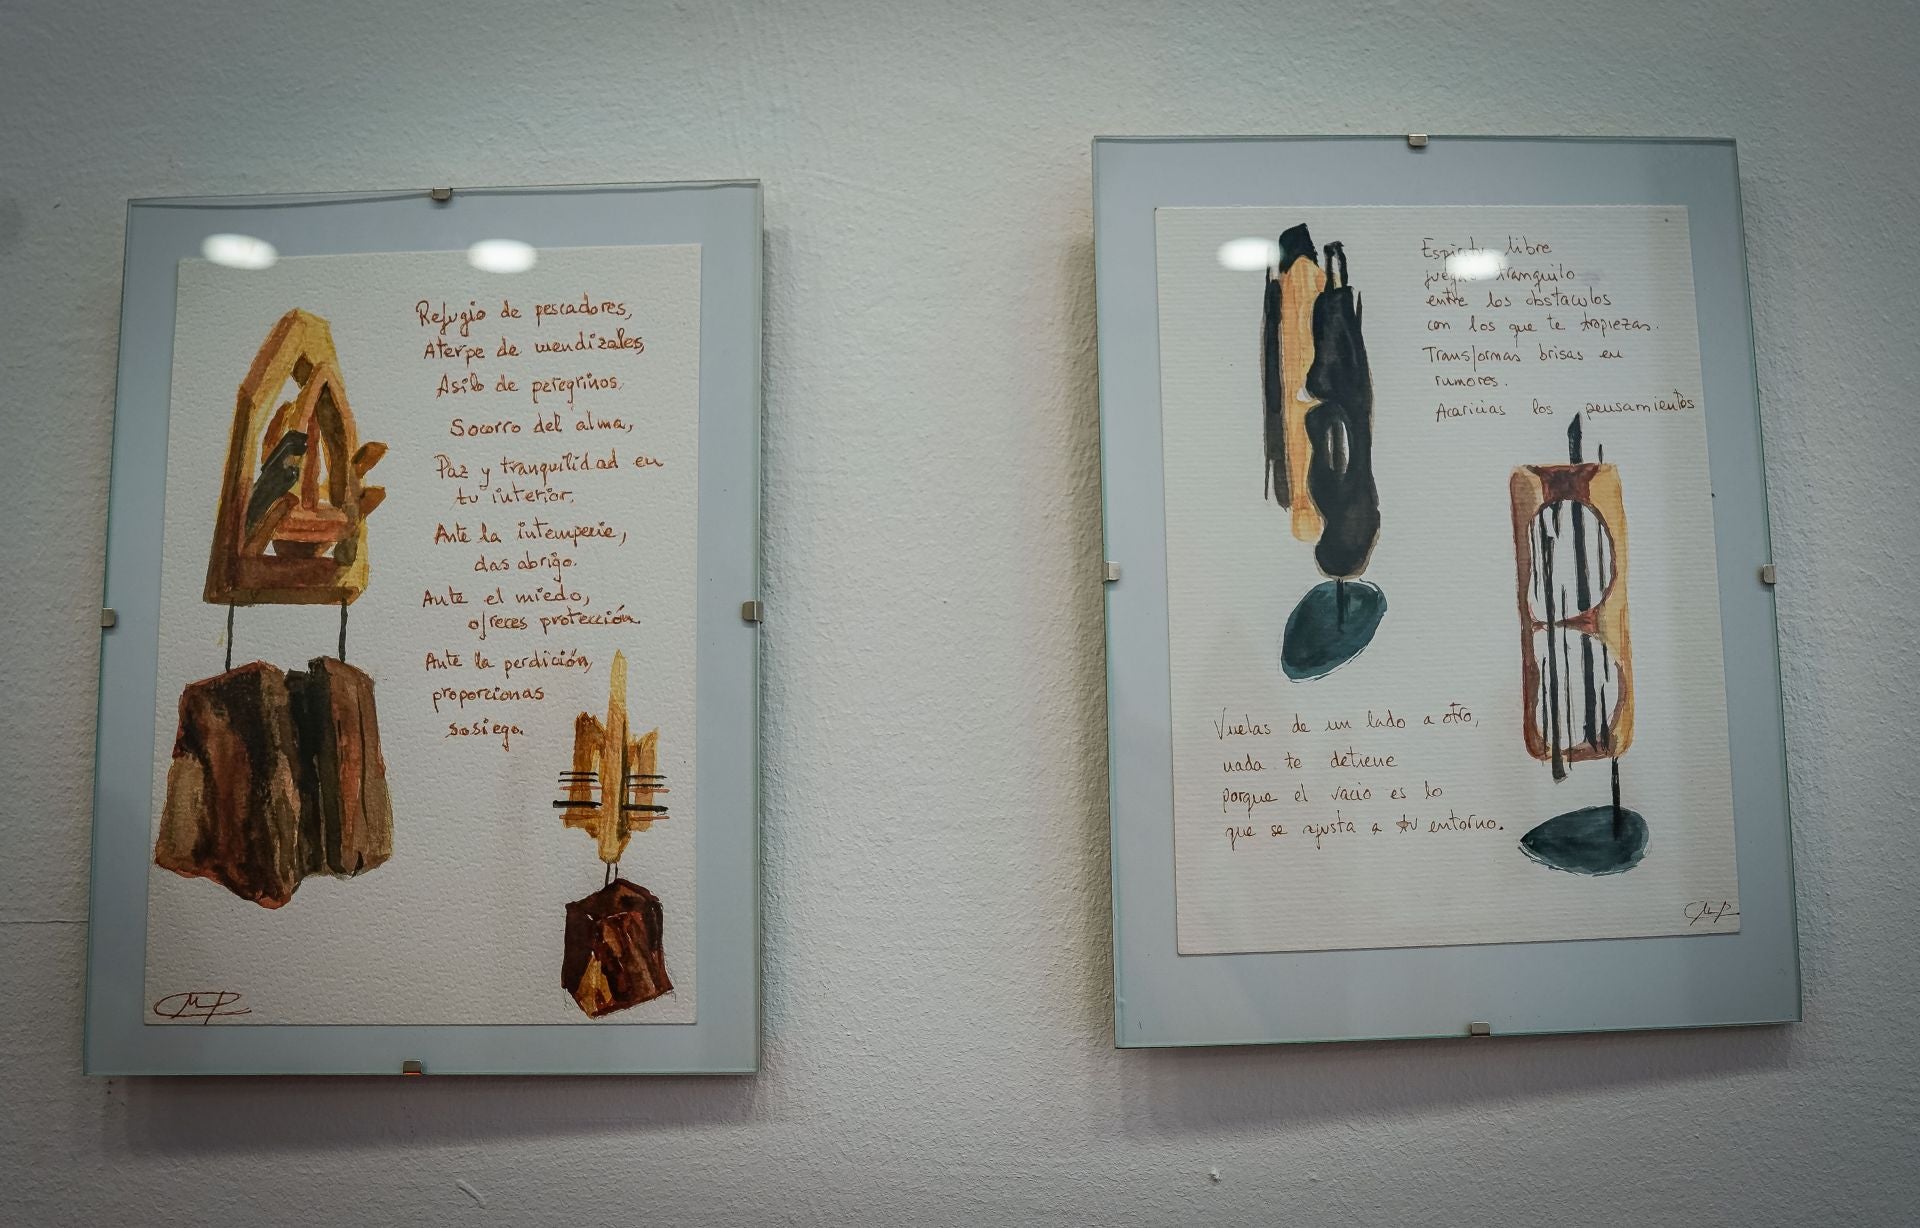 Refugio de pescadores,
Aterpe de mendizales,
Asilo de peregrinos.
Socorro del alma,
Paz y tranquilidad en
tu interior.
Ante la intemperie,
das abrigo.
Ante el miedo,
ofreces protección.
Ante la perdición,
proporcionas
sosiego.
Espiritu libre
juegas tranquilo
entre los obstaculos
con los que te tropiezas.
Transformas brisas en
rumores.
Acaricias los pensamientos
Vuelas de un lado a otro,
nada te detiene
porque el vacio es lo
que se ajusta a tu entorno.